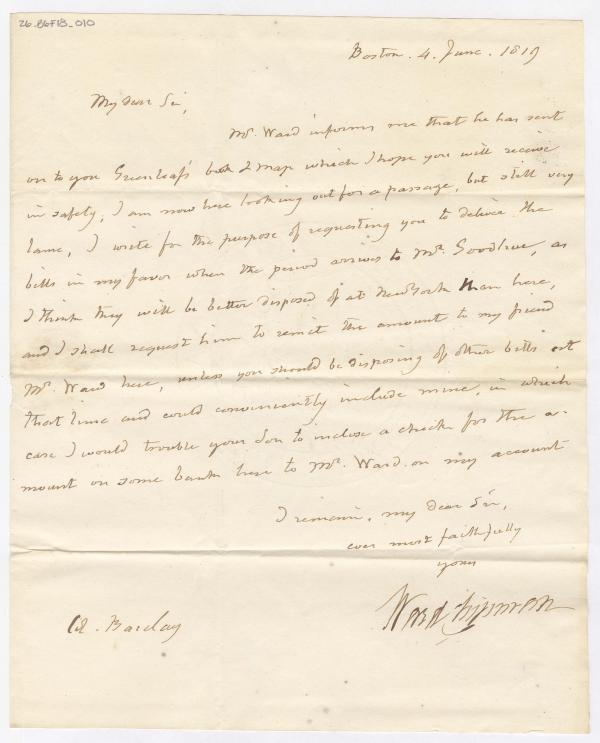 26_B6F1B_010
Boston. 4. June. 1819
My dear Sir,
Mr. Ward informs me that he has sent
on to you Greenleaf's book & map which I hope you will receive
in safety, I am now here looking out for a passage, but still very
lame, I write for the purpose of requesting you to deliver the
bills in my favor when the period arrives to Mr. Goodhue, as
I think they will be better disposed of at New York than here,
and I shall request him to remit the amount to my friend
Mr. Ward here, unless you should be disposing of other bills at
that time and could conveniently include mine, in which
case I would trouble your Son to inclose a check for the a-
mount on some bank here to Mr. Ward on my account
I remain, my dear Sir,
ever most faithfully
yours
Ward Chipman
Barclay